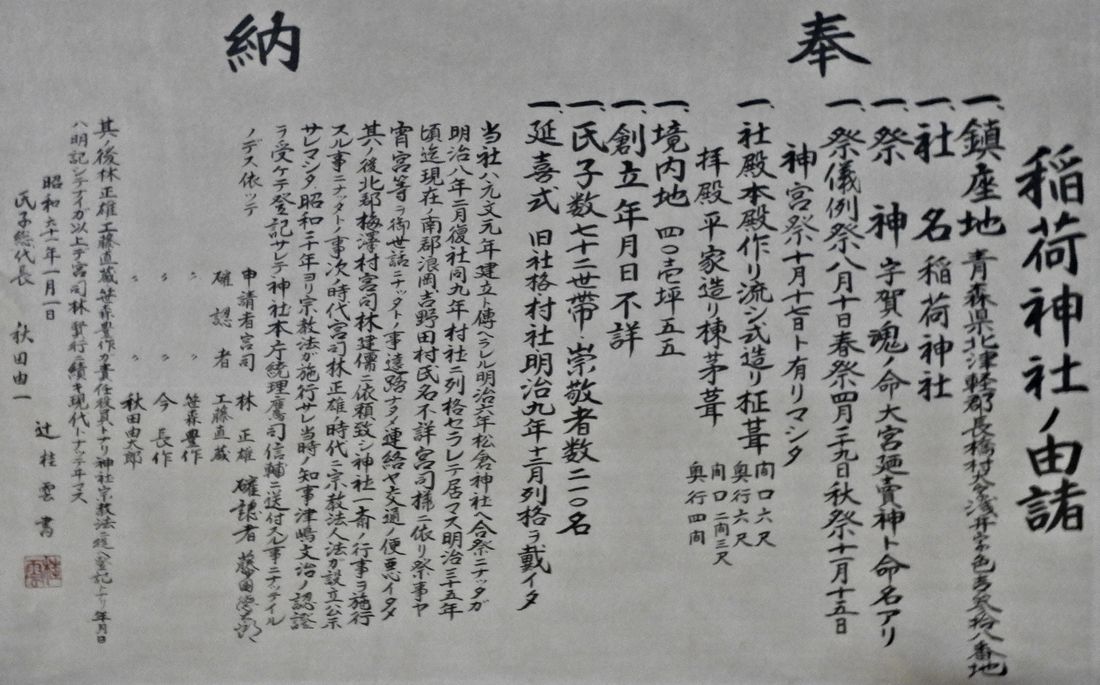 奉納
稲荷神社ノ由諸
一、鎮座地 青森県北津軽郡長橋村大字浅井字色吉参拾八番地
一、社名 稲荷神社
一、祭神 宇賀魂ノ命大宮廼賣神ト命名アリ
一、祭儀例祭八月十日春祭四月二十九日秋祭十一月十五日
神宮祭十月十七日ト有リマシタ
一、社殿本殿作リ流シ式造リ柾葺 間口六尺 奥行六尺
拝殿平家造リ棟茅葺 間口二間三尺 奥行四間
一、境内地 四〇壱坪五五
一、創立年月日不詳
一、氏子数七十二世帯・崇敬者数二一〇名
一、延喜式 旧社格村社明治九年十二月列格ヲ戴イタ
当社ハ元文元年建立ト傳ヘラレ明治六年松倉神社ヘ合祭ニナッタガ
明治八年二月復社同九年村社ニ列格セラレテ居マス明治三十五年
頃迄現在ノ南郡浪岡吉野田村氏名不詳宮司様ニ依リ祭事ヤ
宵宮等ヲ御世話ニナッタトノ事遠路ナタメ連絡ヤ交通ノ便悪イタメ
其ノ後北郡梅澤村宮司林建儒ニ依頼致シ神社一斎ノ行事ヲ施行
スル事ニナッタトノ事次ノ時代宮司林正雄ノ時代ニ宗教法人法ガ設立公示
サレマシタ昭和二十年ヨリ宗教法ガ施行サレ当時ノ知事津嶋文治ノ認證
ヲ受ケテ登記サレテ神社本庁統理鷹司信輔ニ送付スル事ニナッテイル
ノデス依ッテ
申請者宮司 林正雄 確認者 藤田
確認者 工藤直蔵
〃 〃 笹森豊作
〃 〃 今長作
〃 〃 秋田由太郎
其ノ後林正雄工藤直蔵笹森豊作ガ責任役員トナリ神社宗教法ニ登記トナリ年月日
ハ明記シテナイガ以上デ宮司林賢行ニ續キ現代トナッテ居マス
昭和六十一年一月一日
氏子総代長 秋田由一
辻桂雲書